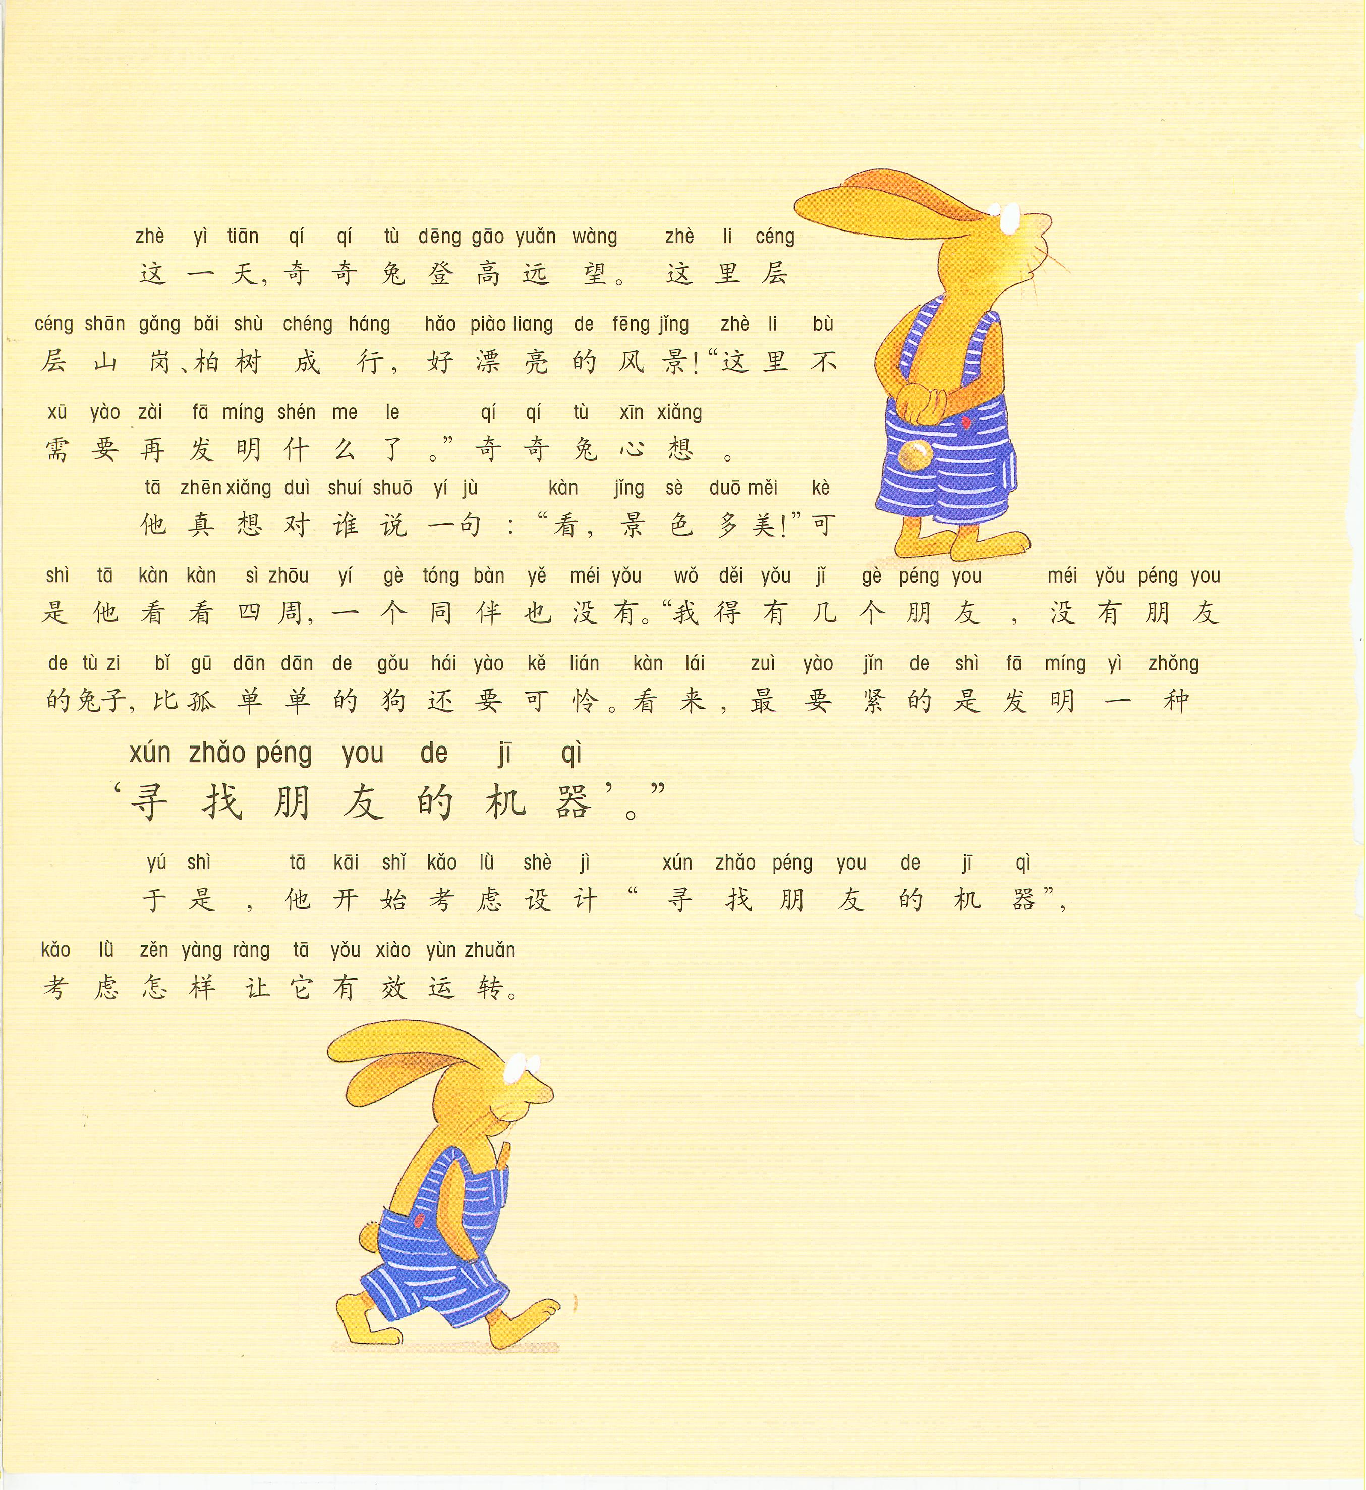 zhè yì tiān qí qí tù dēng gāo yuǎn wàng zhè li céng
这一天，奇奇兔登高远望。这里层
céng shān gǎng bǎi shù chéng háng hǎo piào liang de fēng jǐng zhè li bù
层山岗、柏树成行，好漂亮的风景！“这里不
xū yào zài fā míng shén me le qí qí tù xīn xiǎng
需要再发明什么了。”奇奇兔心想。
tā zhēn xiǎng duì shuí shuō yí jù kàn jǐng sè duō měi kè
他真想对谁说一句：“看，景色多美！”可
shì tā kàn kàn sì zhōu yí gè tóng bàn yě méi yǒu wǒ děi yǒu jǐ gè péng you méi yǒu péng you
是他看看四周，一个同伴也没有。“我得有几个朋友，没有朋友
de tù zi bǐ gū dān dān de gǒu hái yào kě lián kàn lái zuì yào jǐn de shì fā míng yì zhǒng
的兔子，比孤单单的狗还要可怜。看来，最要紧的是发明一种
xún zhǎo péng you de jī qì
‘寻找朋友的机器’。”
yú shì tā kāi shǐ kǎo lǜ shè jì xún zhǎo péng you de jī qì
于是，他开始考虑设计“寻找朋友的机器”，
kǎo lǜ zěn yàng ràng tā yǒu xiào yùn zhuǎn
考虑怎样让它有效运转。